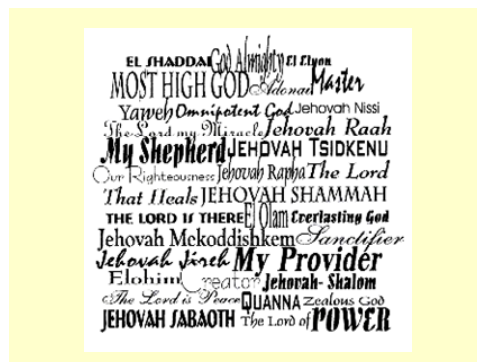 EL SHADDAI God Almighty El Elyon
MOST HIGH GOD Adonai Master
Yaweh Omnipotent God Jehovah Nissi
The Lord my Miracle Jehovah Raah
My Shepherd JEHOVAH TSIDKENU
Our Righteousness Jehovah Rapha The Lord
That Heals JEHOVAH SHAMMAH
THE LORD IS THERE El Olam Everlasting God
Jehovah Mekoddishkem Sanctifier
Jehovah Jireh My Provider
Elohim Creator Jehovah- Shalom
The Lord is Peace QUANNA Zealous God
JEHOVAH SABAOTH The Lord of POWER